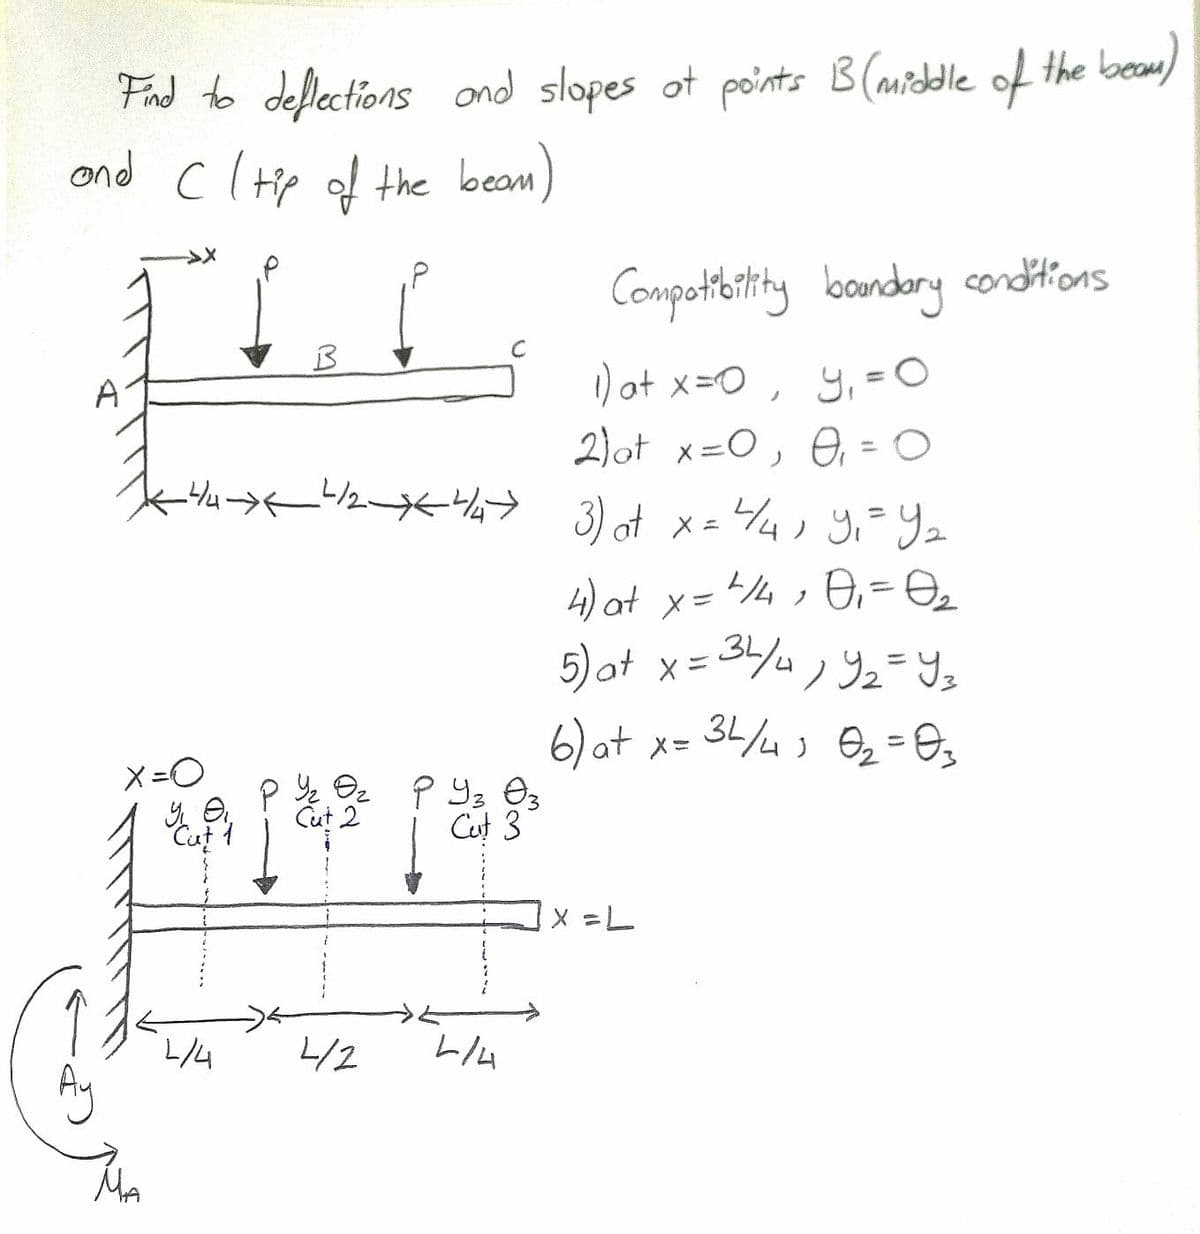 Find to deflections and slopes at points B (middle of the beam)
and C (tip of the beam)
→x
P
P
B
C
A
L/4
L/2
L/4
Compatibility boundary conditions
1) at x=0, y₁=0
2) at x=0, θ₁=0
3) at x=L/4, y₁=y₂
4) at x=L/4, θ₁=θ₂
5) at x=3L/4, y₂=y₃
6) at x=3L/4, θ₂=θ₃
x=0
y₁ θ₁
Cut 1
P
y₂ θ₂
Cut 2
P
y₃ θ₃
Cut 3
x=L
L/4
L/2
L/4
Ay
MA